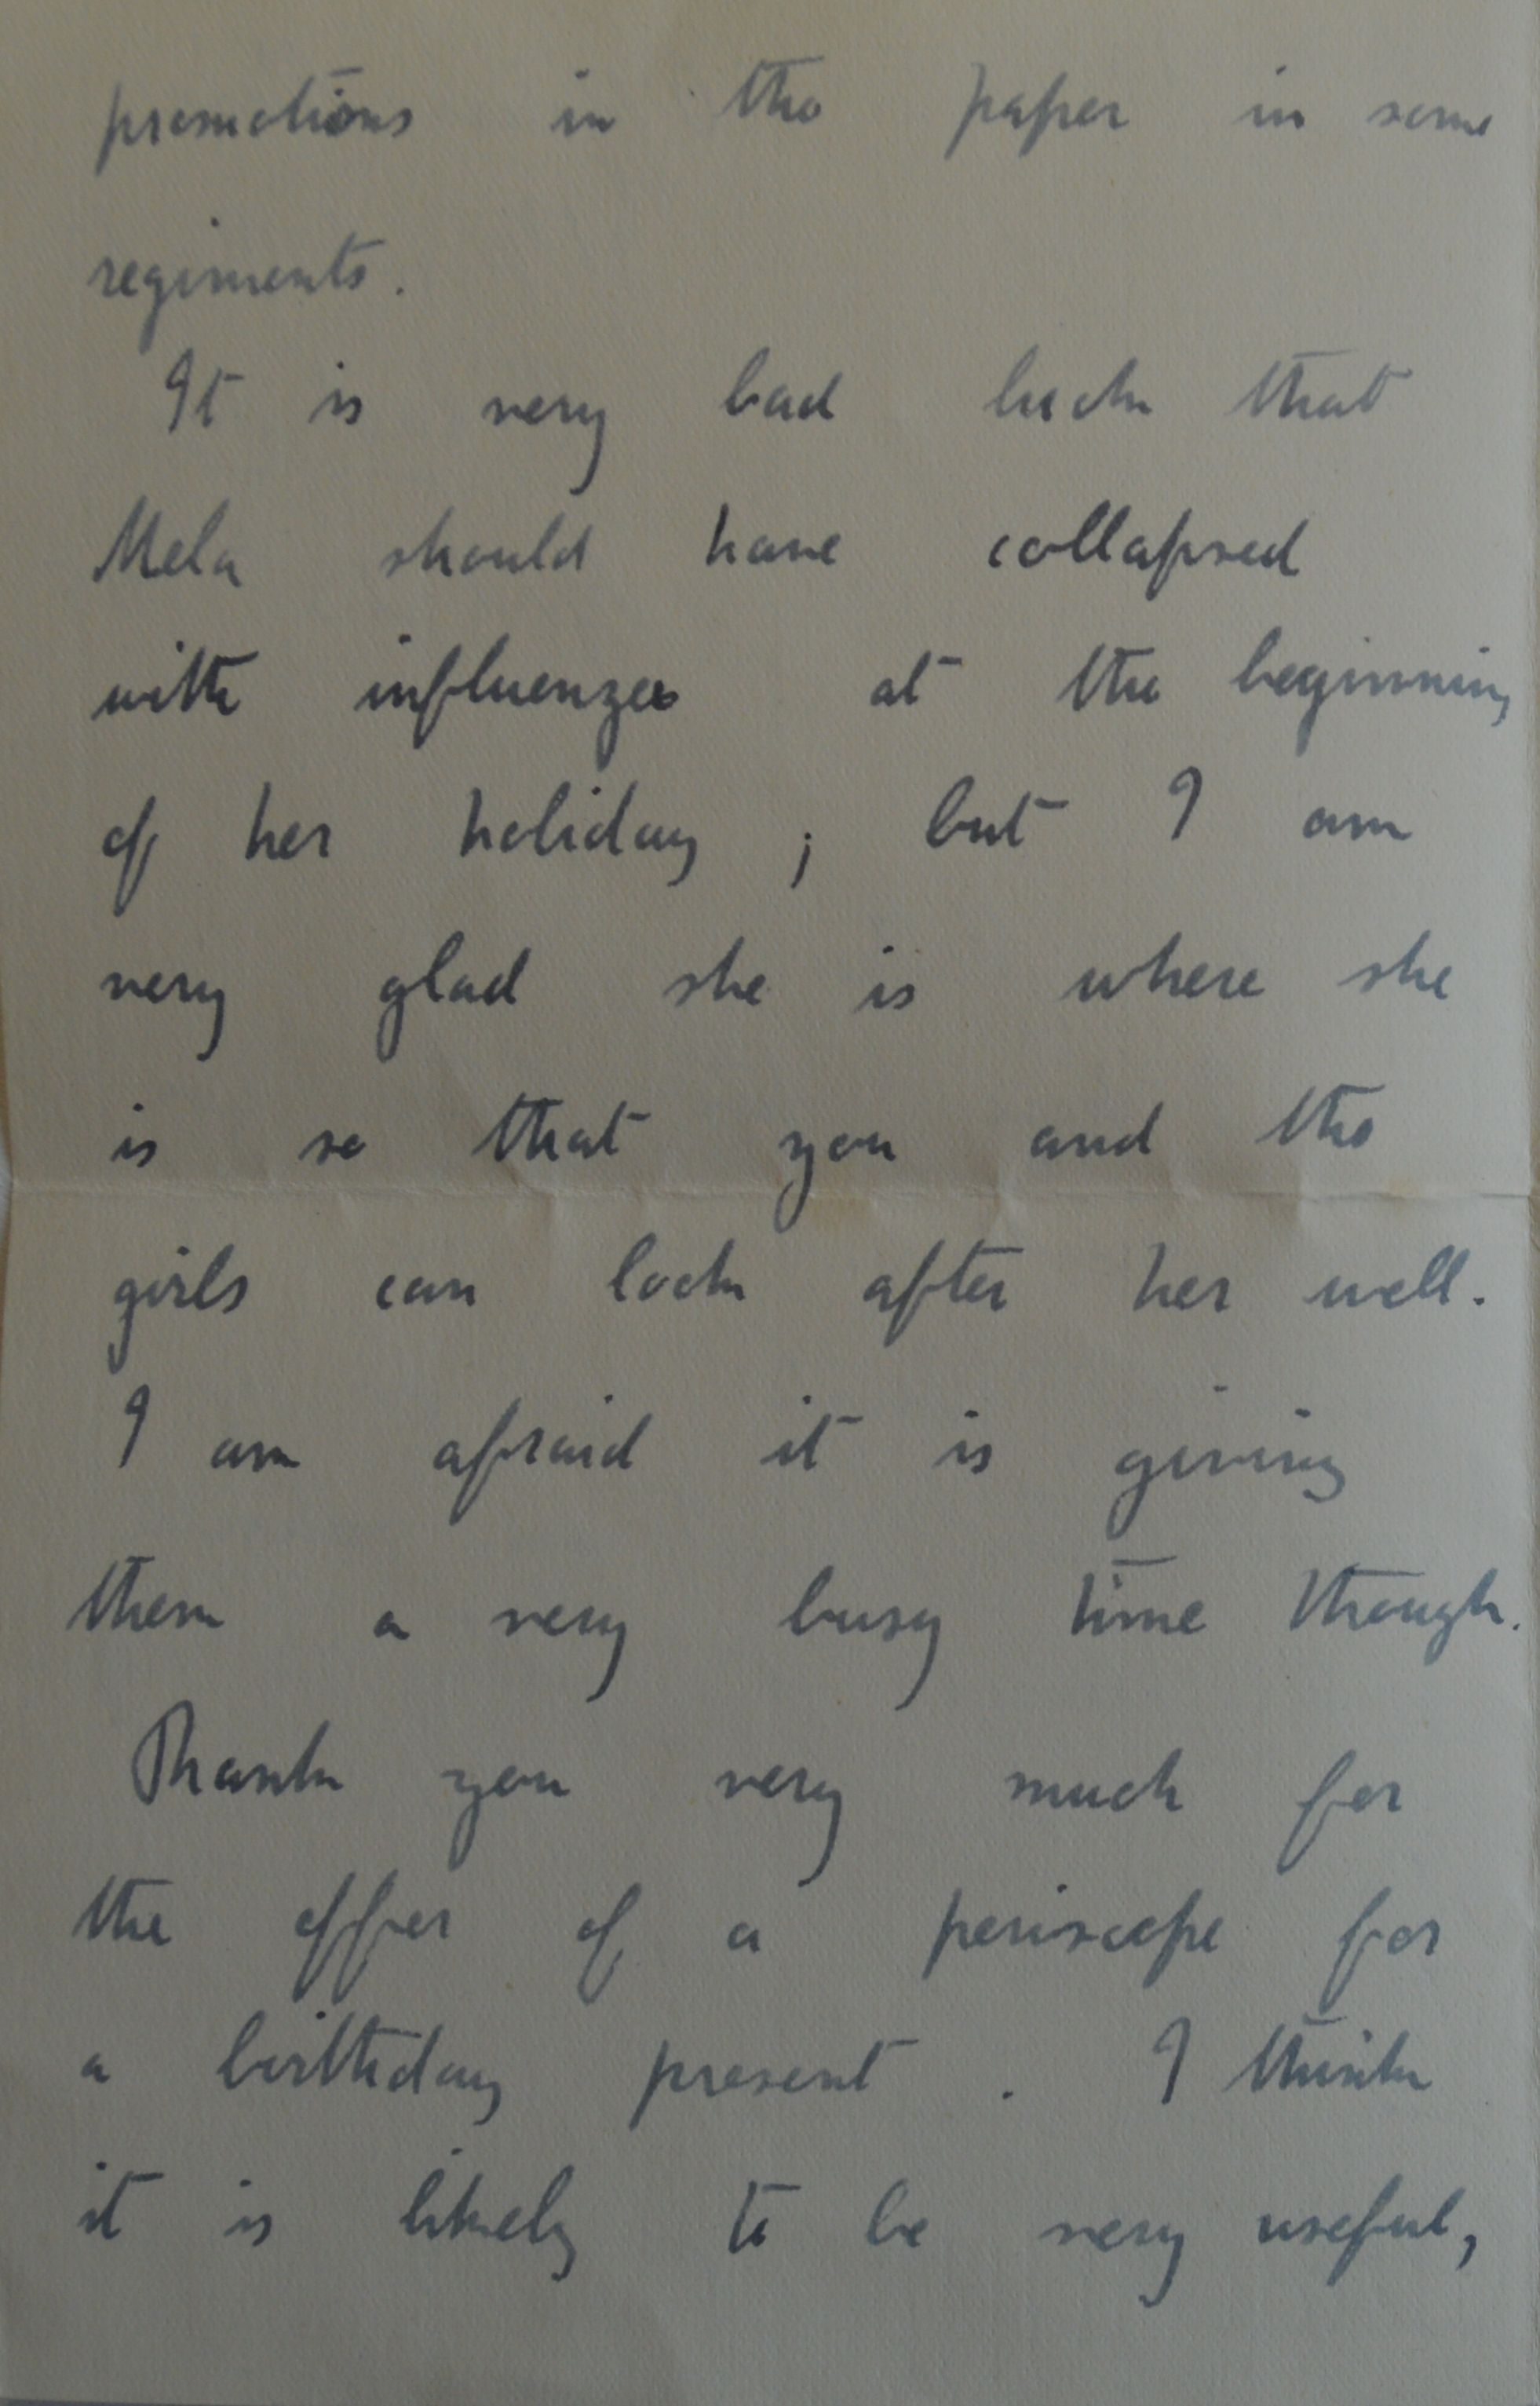 promotions in the paper in some
regiments.
It is very bad luck that
Mela should have collapsed
with influenza at the beginning
of her holiday; but I am
very glad she is where she
is so that you and the
girls can look after her well.
I am afraid it is giving
them a very busy time though.
Thank you very much for
the offer of a periscope for
a birthday present. I think
it is likely to be very useful,